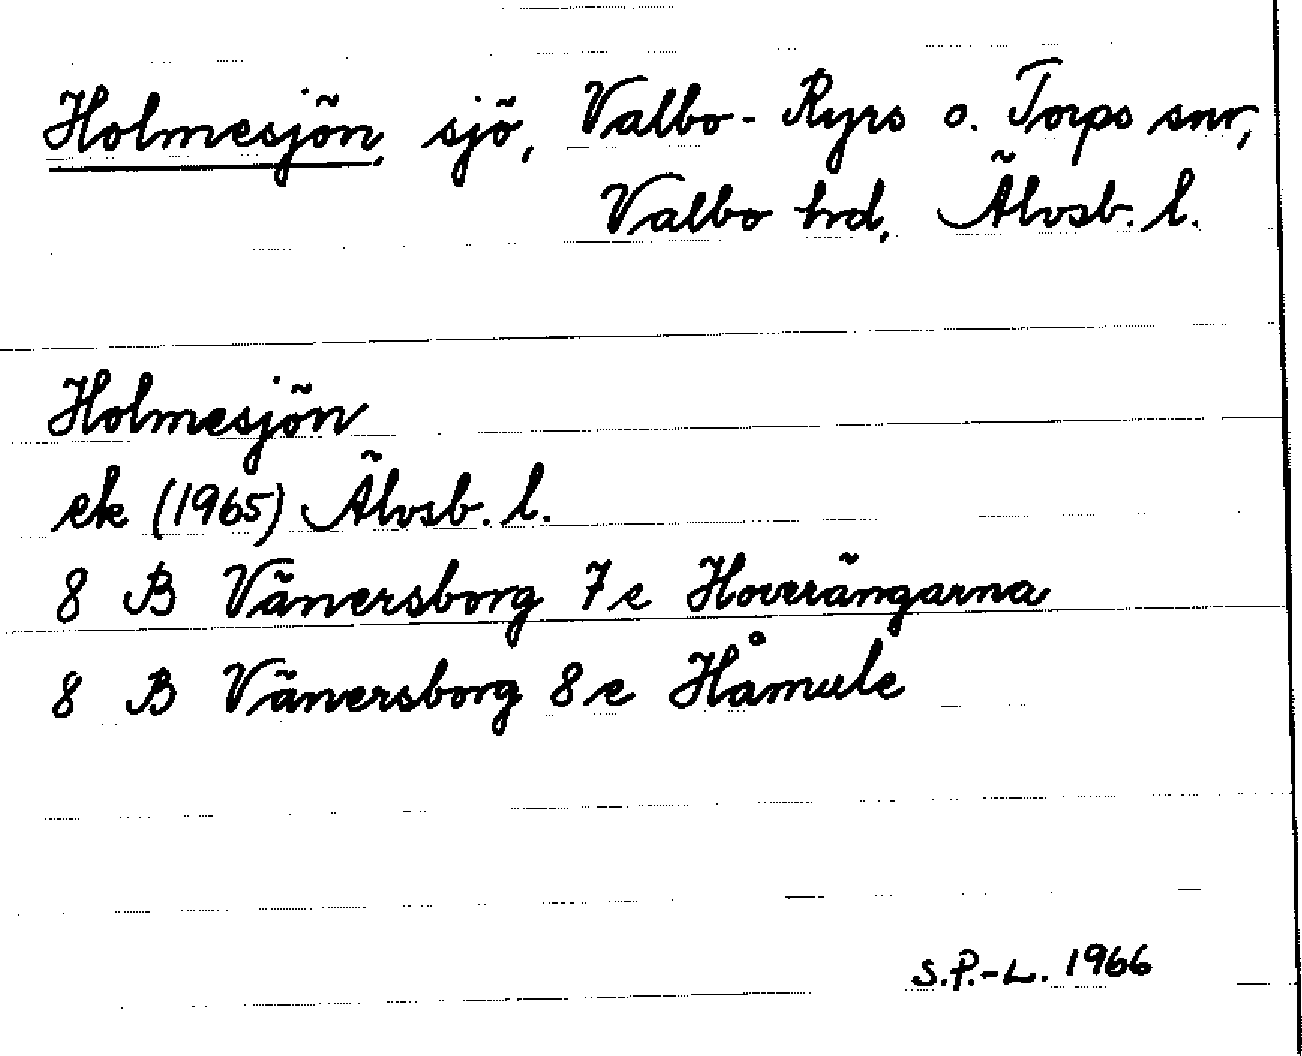 Holmesjön, sjö, Valbo-Ryrs o. Torps snr,
Valbo hrd, Älvsb. l.
Holmesjön
ek (1965) Älvsb. l.
8 B Vänersborg 7e Hoverängarna
8 B Vänersborg 8e Håmule
S.P.-L. 1966